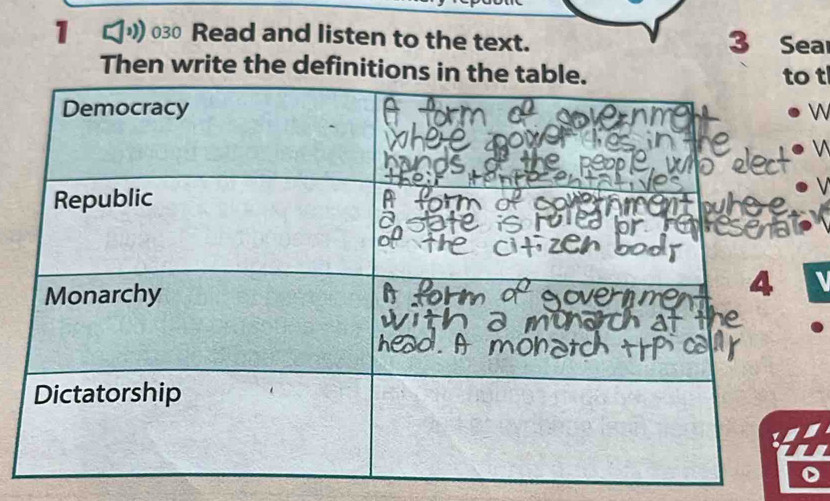 1 030 Read and listen to the text.
Then write the definitions in the table.
3 Sear
to th
Democracy
A form of government
where power lies in the
hands of the people who elect
their
Republic
A form of government where
a state is ruled br representativ
of the citizen body
Monarchy
A form of government
with a monarch at the
head. A monarch typically
4
Dictatorship